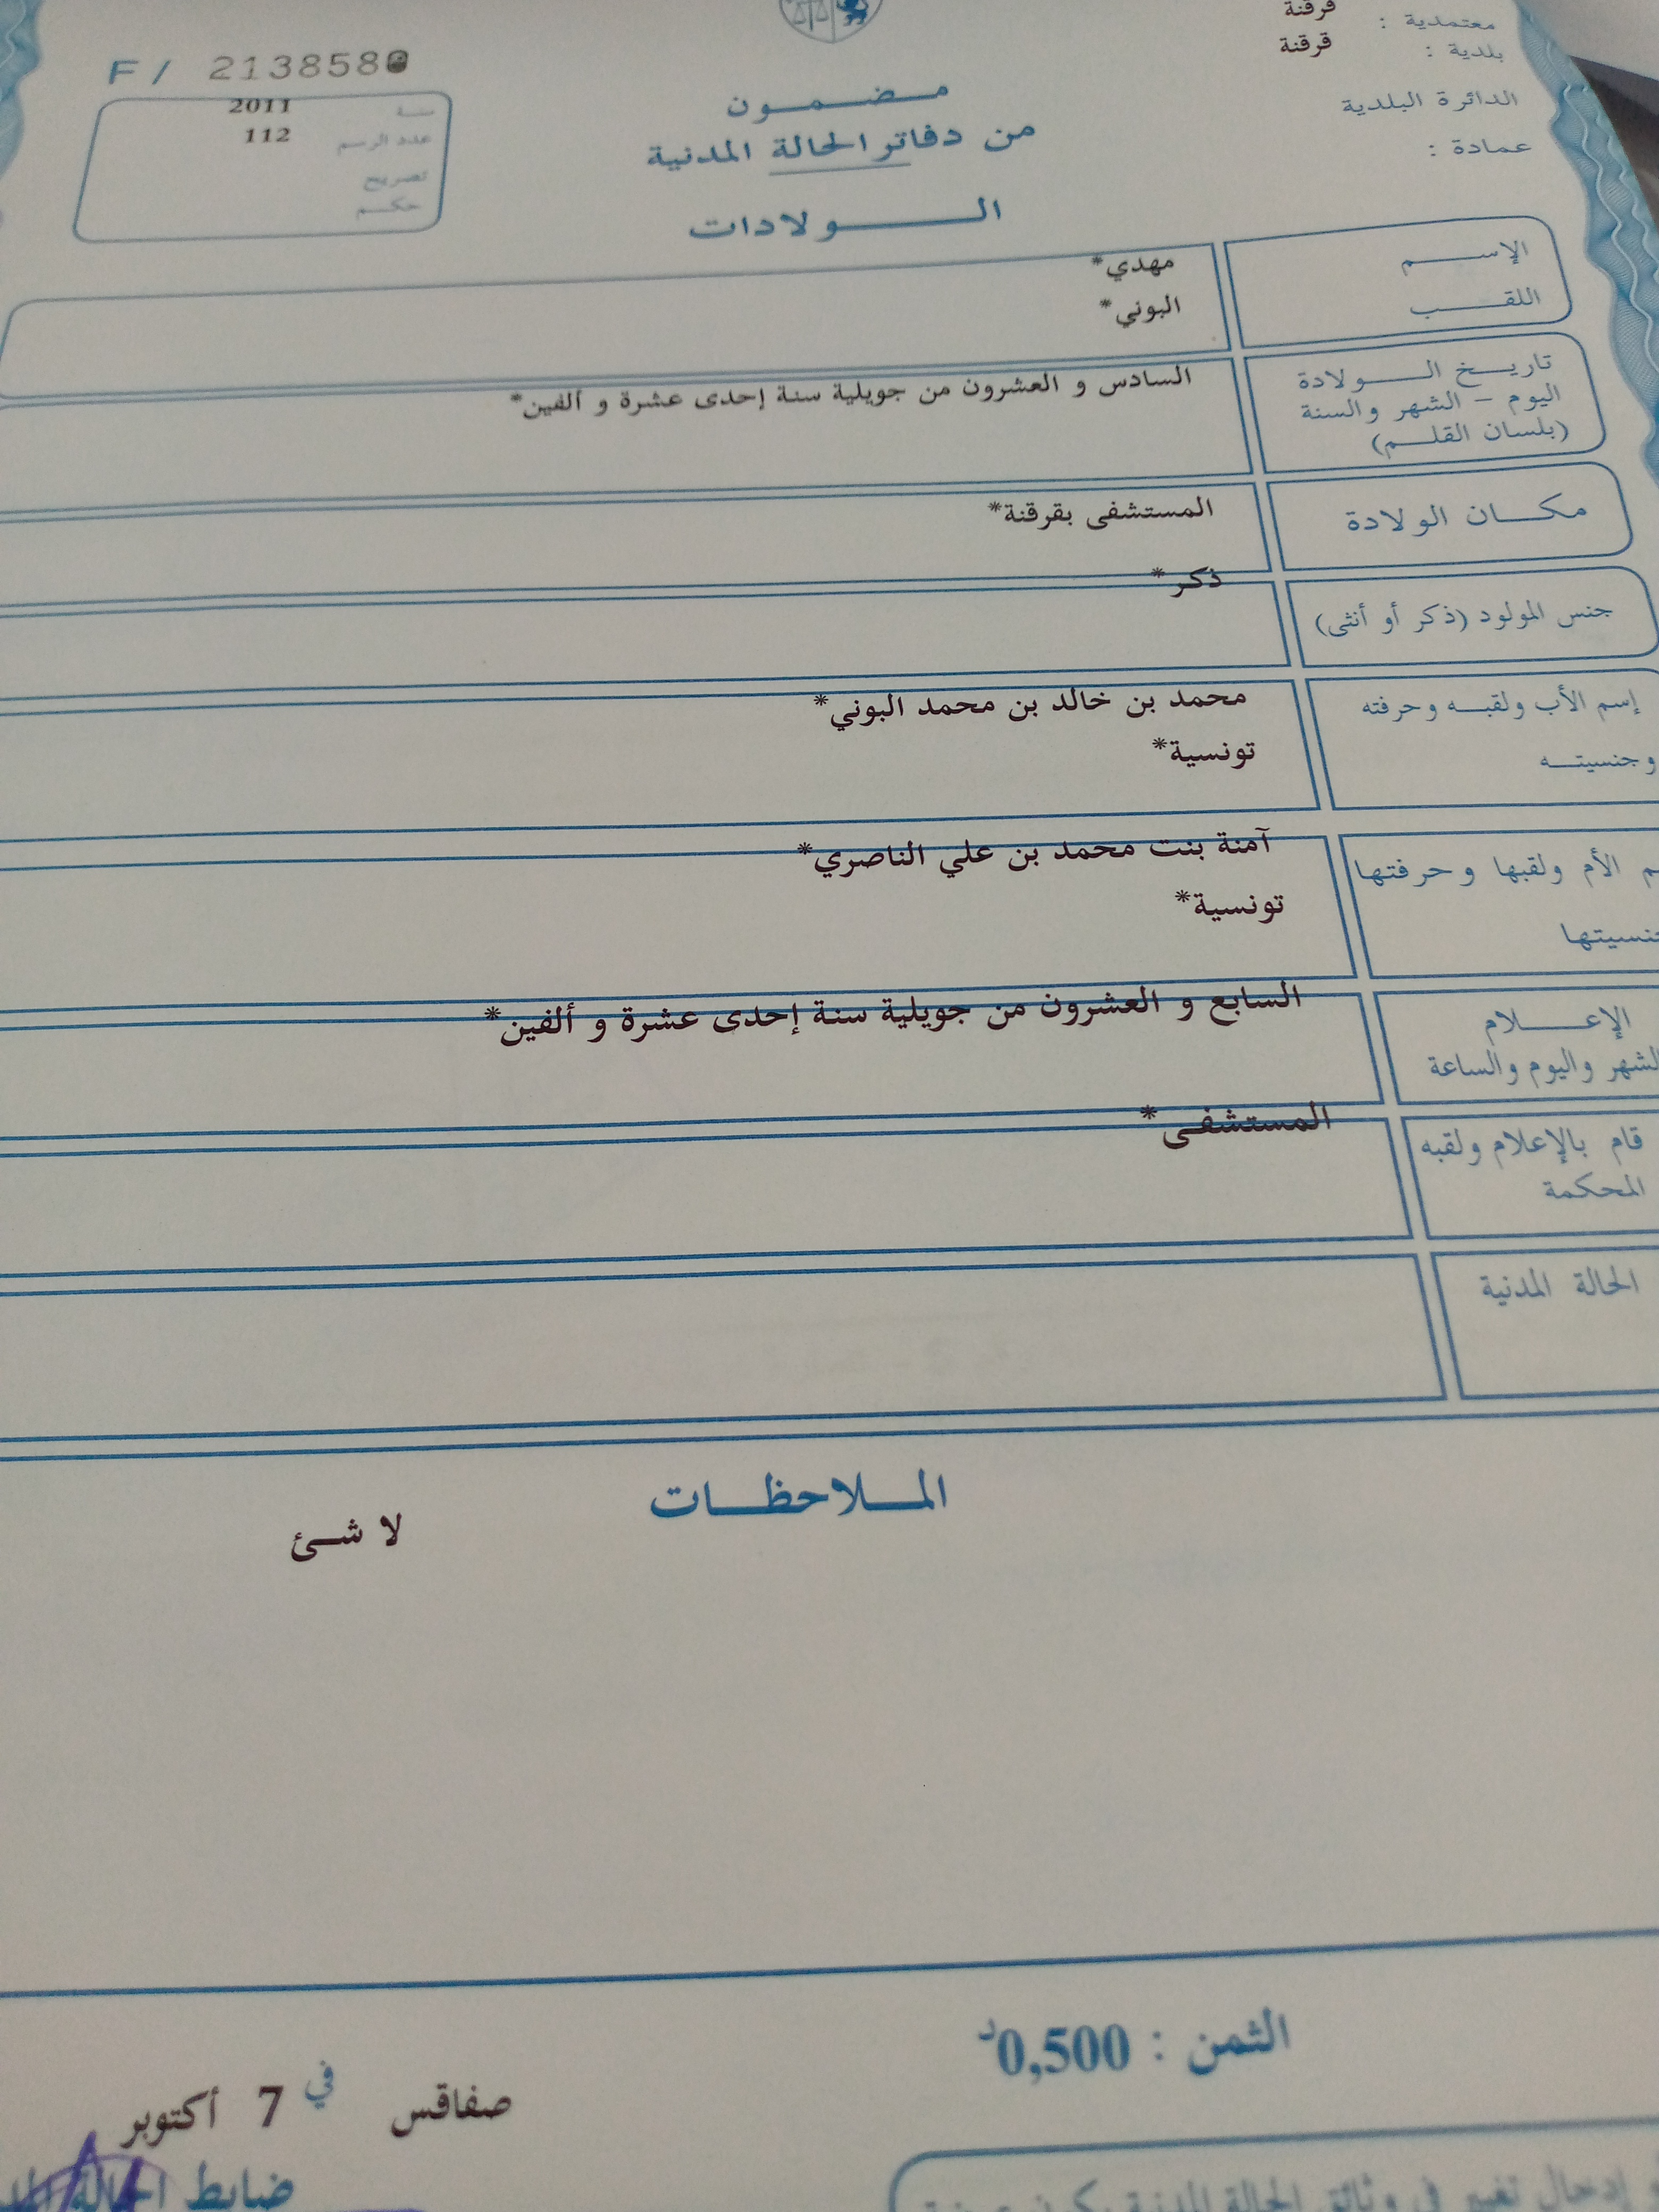 معتمدية : قرقنة
بلدية : قرقنة
الدائرة البلدية
عمادة :
F/ 213858
سنة 2011
عدد الرسم 112
تصريح
حكم
مضمون
من دفاتر الحالة المدنية
الولادات
الإسم مهدي*
اللقب البوني*
تاريخ الولادة السادس و العشرون من جويلية سنة إحدى عشرة و ألفين*
اليوم - الشهر والسنة
(بلسان القلم)
مكان الولادة المستشفى بقرقنة*
جنس المولود (ذكر أو أنثى) ذكر*
إسم الأب ولقبه وحرفته محمد بن خالد بن محمد البوني*
وجنسيته تونسية*
الأم ولقبها وحرفتها آمنة بنت محمد بن علي الناصري*
تونسية*
الإعلام السابع و العشرون من جويلية سنة إحدى عشرة و ألفين*
الشهر واليوم والساعة
قام بالإعلام ولقبه المستشفى*
المحكمة
الحالة المدنية
الملاحظات
لا شئ
الثمن : 0,500د
صفاقس في 7 أكتوبر
ضابط الحالة
إدخال تغيير في وثائق الحالة المدنية يكون